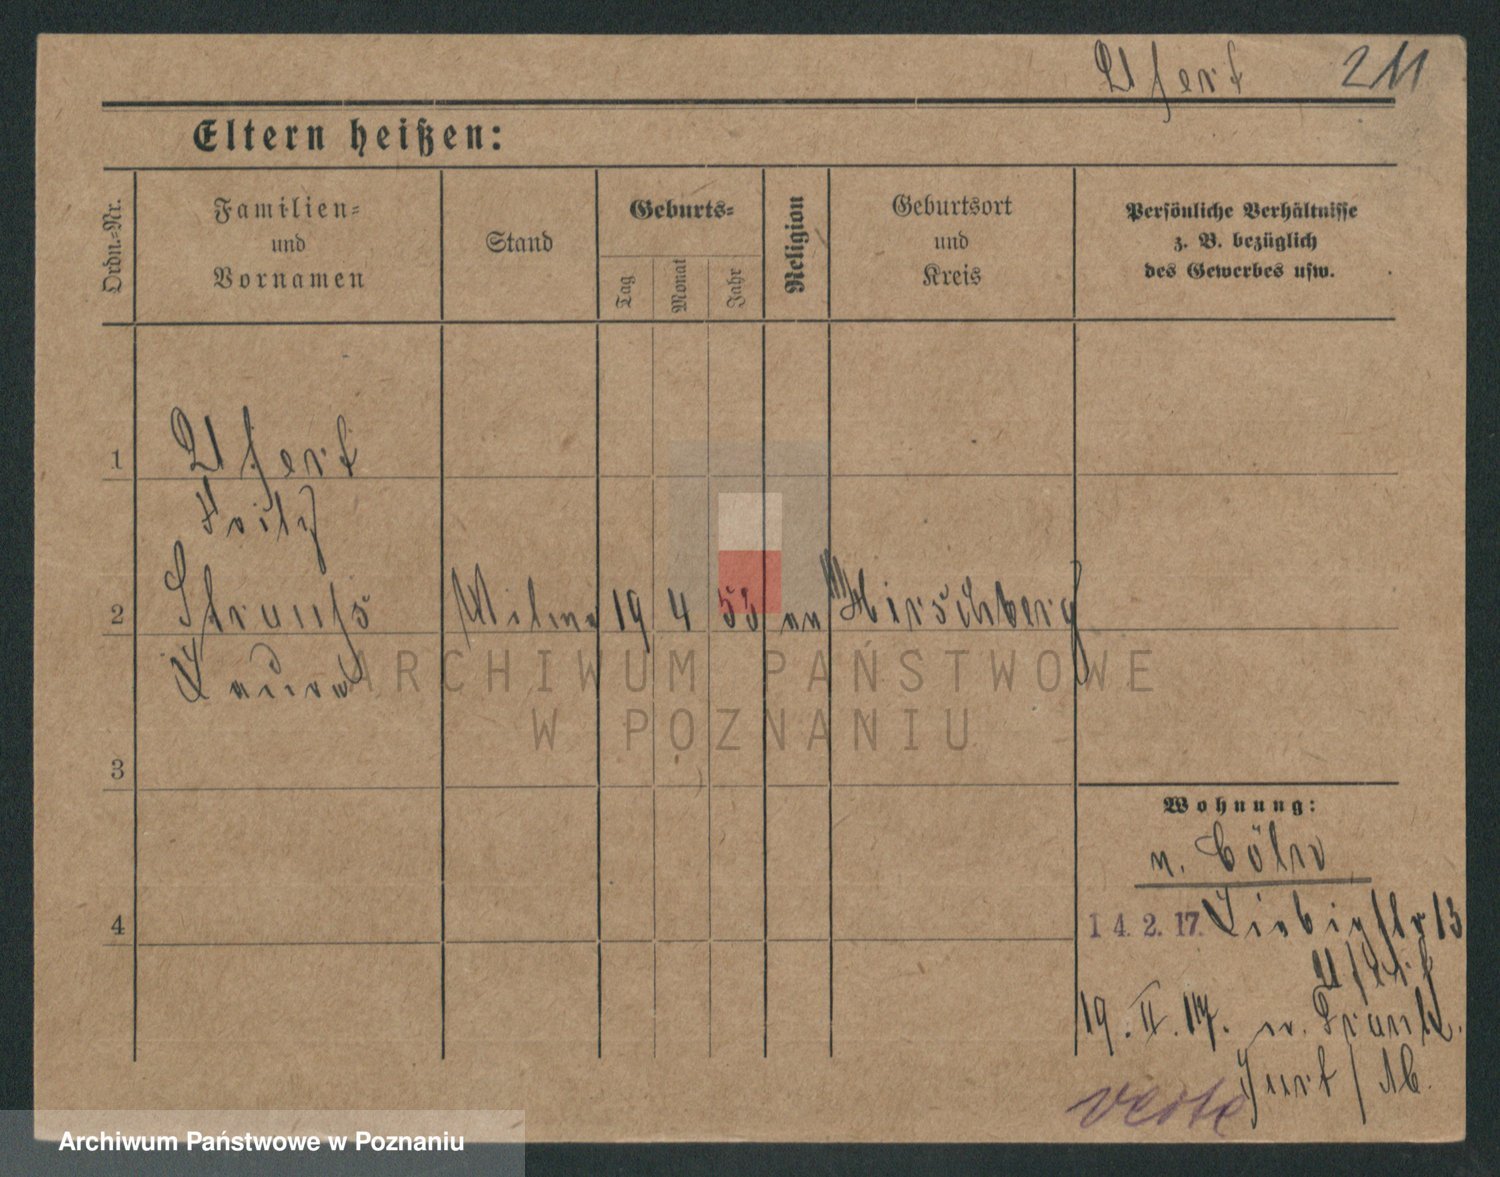 Ufert 211
Eltern heißen:
Ordn.-Nr.
Familien-
und
Vornamen
Stand
Geburts-
Tag
Monat
Jahr
Religion
Geburtsort
und
Kreis
Persönliche Verhältnisse
z. B. bezüglich
des Gewerbes usw.
1 Ufert
Fritz
2 Strauß 19 4 53 Hirschberg
Laura
3
4
Wohnung:
n. Cöln
14. 2. 17. Liebigstr 13
Ufert
19. II. 17. n. Frank
furt / M.
verte
ARCHIWUM PAŃSTWOWE
W POZNANIU
Archiwum Państwowe w Poznaniu